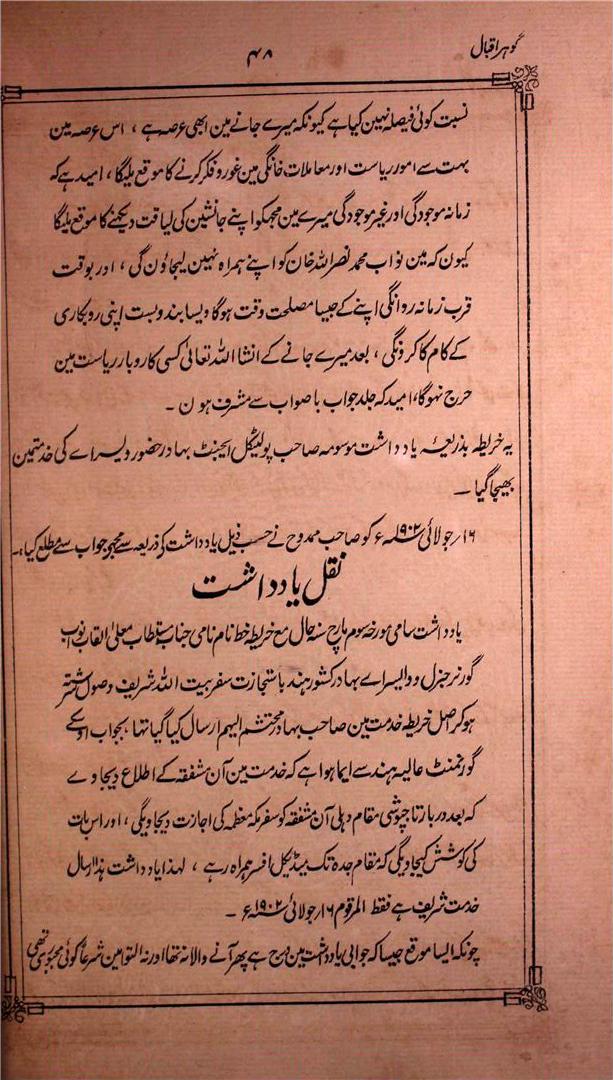 گوہر اقبال
۴۸
نسبت کوئی فیصلہ نہین کیا ہے کیونکہ میرے جانے مین ابھی عرصہ ہے ، اس عرصہ مین
بہت سے امور ریاست اور معاملات خانگی مین غور و فکر کرنے کا موقع ملیگا ، امید ہے کہ
زمانہ موجودگی اور غیر موجودگی میرے مین مجھکو اپنے جانشین کی لیاقت دیکھنے کا موقع ملیگا
کیون کہ مین نواب محمد نصر اللہ خان کو اپنے ہمراہ نہین لیجاؤن گی ، اور بوقت
قرب زمانہ روانگی اپنے کے جیسا مصلحت وقت ہوگا ویسا بندوبست اپنی روبکاری
کے کام کا کرونگی ، بعد میرے جانے کے انشا اللہ تعالیٰ کسی کاروبار ریاست مین
حرج نہوگا ، امید کہ جلد جواب با صواب سے مشرف ہون ۔
یہ خریطہ بذریعہ یادداشت موسومہ صاحب پولیٹکل ایجنٹ بہادر حضور ویسراے کی خدمتمین
بھیجا گیا ۔
۱۶ ؍ جولائی سنہ ۱۹۰۲ ء کو صاحب ممدوح نے حسب ذیل یادداشت کے ذریعہ سے مجھے جواب سے مطلع کیا :۔
نقل یادداشت
یادداشت سامی مورخہ سوم مارچ سنہ حال مع خریطہ خط نام نامی جناب مستطاب معلیٰ القاب نواب
گورنر جنرل و وایسراے بہادر کشور ہند باستجازت سفر بیت اللہ شریف وصول
ہوکر اصل خریطہ خدمت مین صاحب بہادر محتشم الیہم ارسال کیا گیا تھا ، بجواب اوسکے
گورنمنٹ عالیہ ہند سے ایما ہوا ہے کہ خدمت مین آن مشفقہ کے اطلاع دیجاوے
کہ بعد دربار تاجپوشی مقام دہلی آن مشفقہ کو سفر مکہ معظمہ کی اجازت دیجاویگی ، اور اس بات
کی کوشش کیجاویگی کہ مقام جدہ تک میڈیکل افسر ہمراہ رہے ، لہذا یادداشت ہذا ارسال
خدمت شریف ہے فقط المرقوم ۱۶ ؍ جولائی سنہ ۱۹۰۲ ء ۔
چونکہ ایسا موقع جیسا کہ جوابی یادداشت مین درج ہے پھر آنے والا نہ تھا اور نہ التوا مین شرعاً کوئی مجبوری تھی